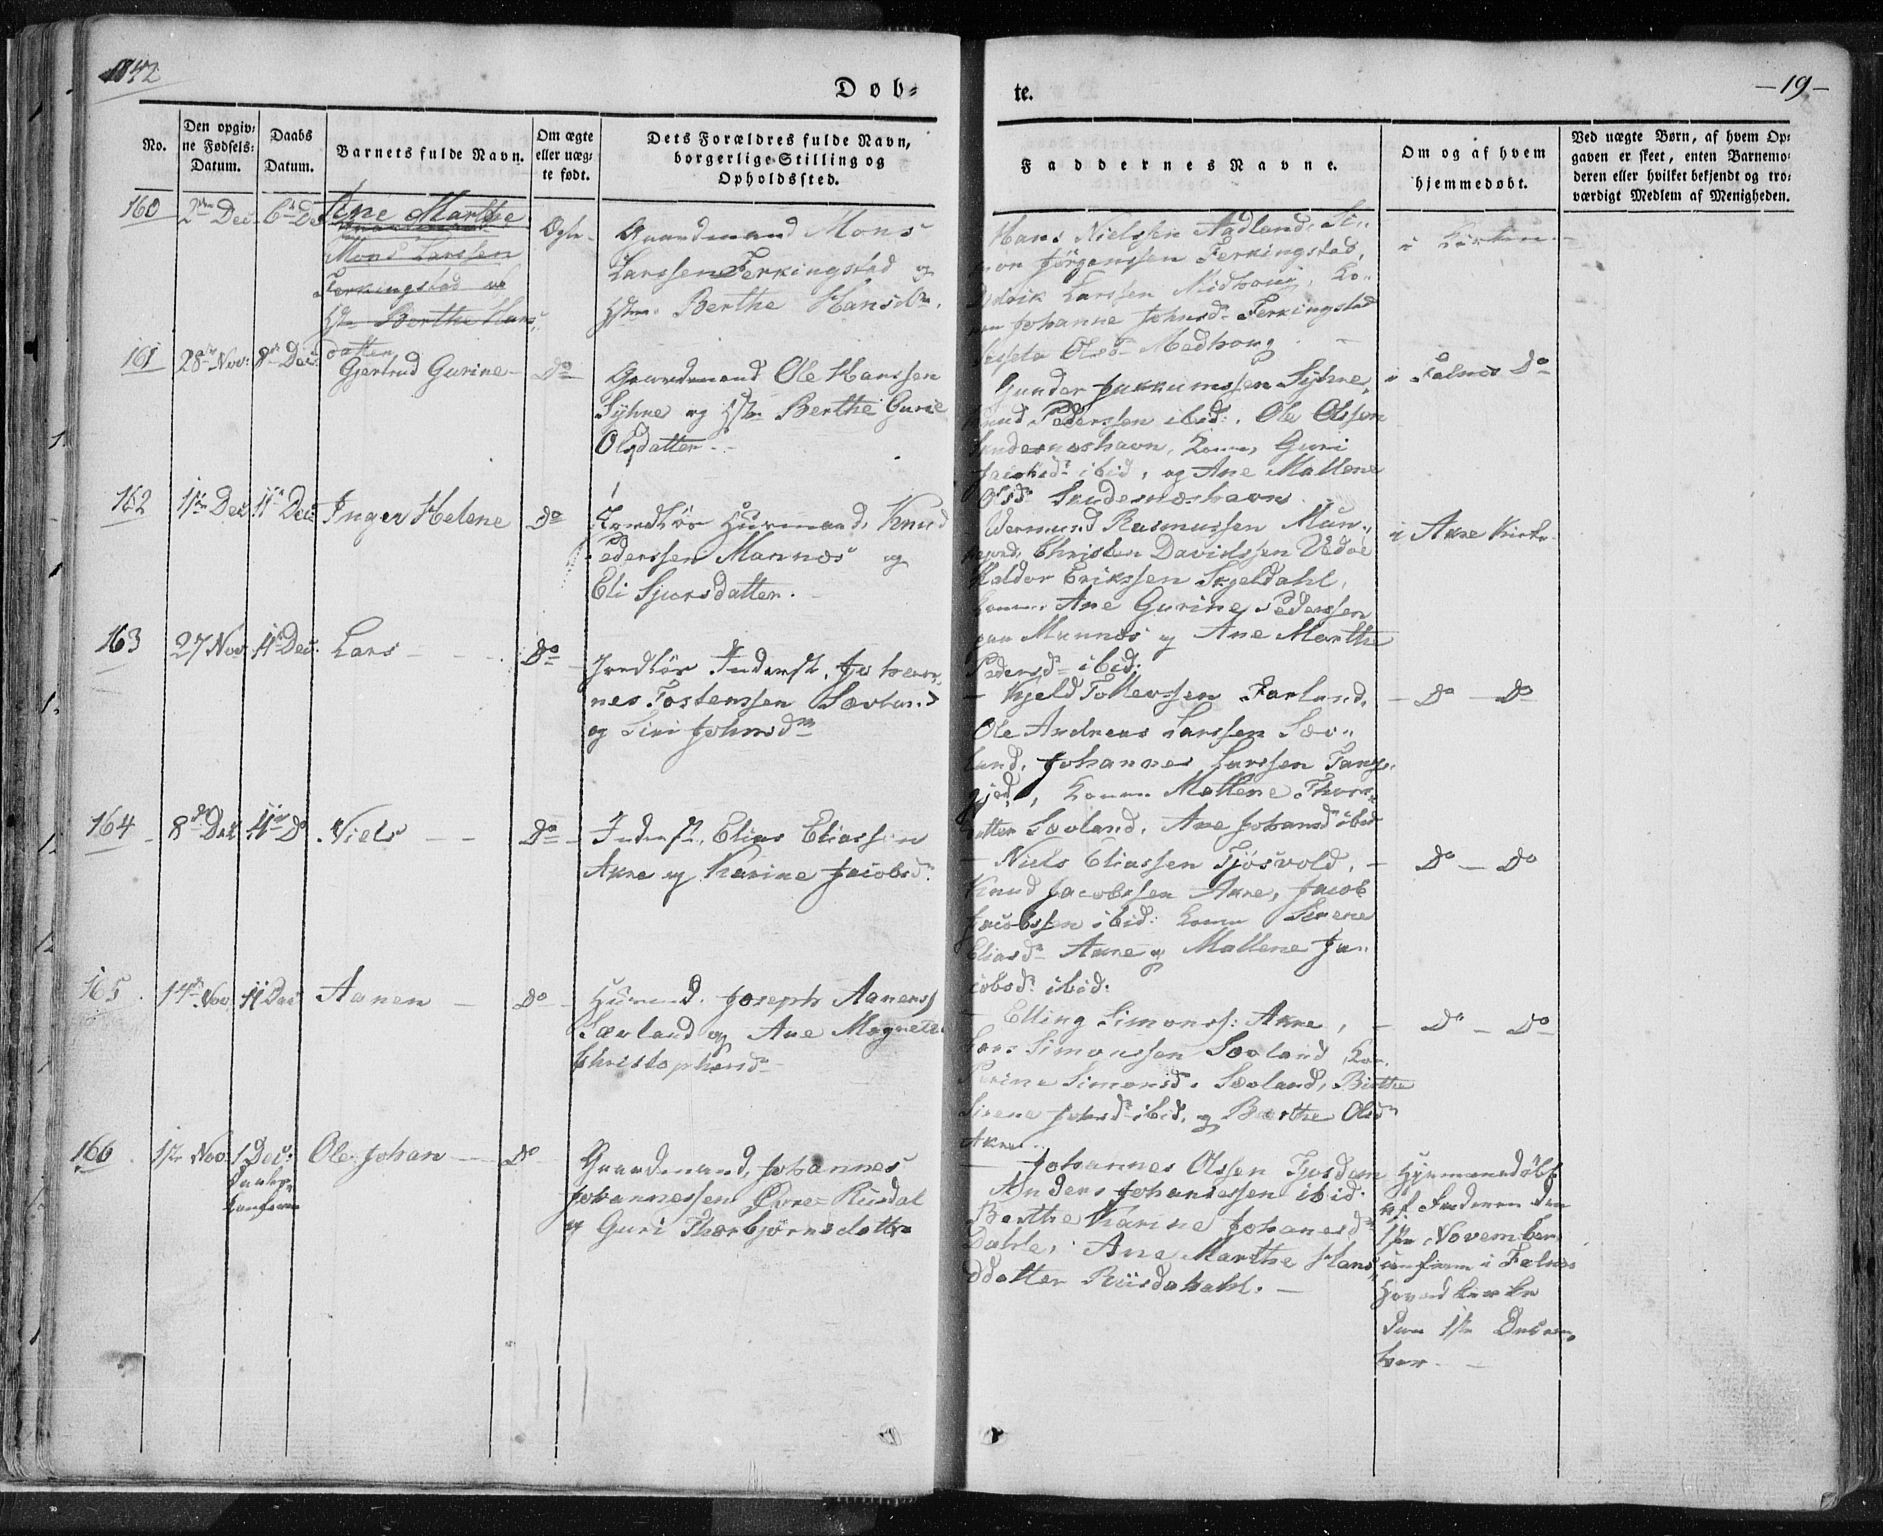 1842
Døb-
te.
-19-
No.
Den opgiv-
ne Fødsels-
Datum.
Daabs
Datum.
Barnets fulde Navn.
Om ægte
eller uæg-
te født.
Dets Forældres fulde Navn,
borgerlige Stilling og
Opholdssted.
Faddernes Navne.
Om og af hvem
hjemmedøbt.
Ved uægte Børn, af hvem Op-
gaven er skeet, enten Barnemo-
deren eller hvilket bekjendt og tro-
værdigt Medlem af Menigheden.
160
2den Dec
6te De
Ane Marthe
Gaardmand
Mons Larssen
Ferkingstad og
Hstr Berthe Hans
datter
Ægte
Gaardmand Mons
Larssen Ferkingstad og
Hstr. Berthe Hansdr.
Hans Nielssen Aadland, Si-
mon Jørgenssen Ferkingstad,
Larssen Midhoug, Ko-
ner Johanne Johnsd. Ferkingstad
Olsd Medhoug
i Kirken
161
28de Nov:
8de Dec:
Gjertrud Gurine
Do
Gaardmand Ole Hanssen
Syhre og Hstr Berthe Gurie
Olsdatter
Gunder Jakkumssen Syhre,
Knud Pederssen ibid:, Ole Olssen
Skudesneshavn, Koner, Guri
Jacobsd: ibid, og Ane Mallene
Olsd. Skudesneshavn
i Falnes Do
162
1ste Dec
11te Dec
Inger Helene
Do
Jordløs Huusmand, Knud
Pederssen Mannes og
Eli Sjursdatter.
Vermund Rasmussen Mun-
Christen Davidssen Vedøe
Haldor Erikssen Skjeldahl,
Koner Ane Gurine Pederssen
paa Mannes og Ane Marthe
Pedersd ibid:
i Akre Kirke
163
27 Nov
11te Dec:
Lars
Do
Jordløs Inderst, Johan-
nes Tostenssen Sævland
og Siri Johnsdtr
Kjeld Tollevssen Farland,
Ole Andreas Larssen Sæv-
land, Johannes Larssen Tang-
jerd, Koner Mallene Thors-
datter Sævland, Ane Johansd ibid
Do - Do
164
8de Dec
11te D
Niels
Do
Inderst, Elias Eliassen
Akre og Karine Jacobsd.
Niels Eliassen Tjøsvold,
Knud Jacobssen Akre, Jacob
Jacobssen ibid: Koner Serene
Eliasd Akre og Mallene Ja-
cobsd: ibid:
Do - Do
165
14de Nov
11 Dec
Aanen
Do
Huusmd. Joseph Aanenss
Sævland og Ane Magrete
Christophersd
Elling Simonss: Akre,
Lars Simonssen Sævland, Kon.
Serine Simonsd. Sævland, Birthe
Sirene Johsd ibid, og Berthe Olsd
Akre
Do - Do
166
1ste Nov
1 Dec:
Daabs
Confirm
Ole Johan
Do
Gaardmand, Johannes
Johannessen Øvre-Riisdal
og Guri Thorbjørnsdatter
Johannes Olssen Tjosdam
Anders Johanessen ibid.
Berthe Karine Johanesd
Dahle, Ane Marthe Hans
ddatter Riisdahahl.
Hjemmedøbt
af Faderen den
1ste November
confirm i Falnes
Hovedkirke
den 1ste Decem-
ber